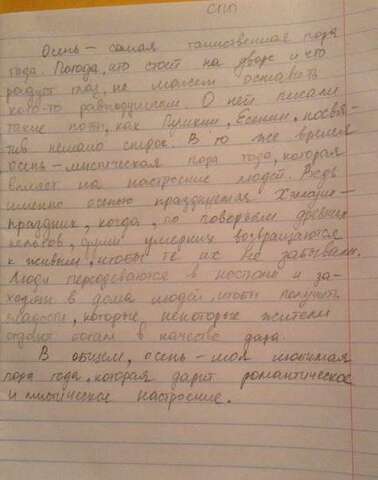 СПП
Осень – самая таинственная пора
года. Погода, что стоит на дворе и что
радует глаз, не может оставить
кого-то равнодушным. О ней писали
такие поэты, как Пушкин, Есенин, посвя-
тив немало строк. В то же время
осень – мистическая пора года, которая
влияет на настроение людей. Ведь
именно осенью празднуется Хэллоуин –
праздник, когда, по поверьям древних
кельтов, души умерших возвращаются
к живым, чтобы те их не забывали.
Люди переодеваются в костюмы и за-
ходят в дома людей, чтобы получить
сладости, которые некоторые жители
отдают гостям в качестве дара.
В общем, осень – моя любимая
пора года, которая дарит романтическое
и мистическое настроение.